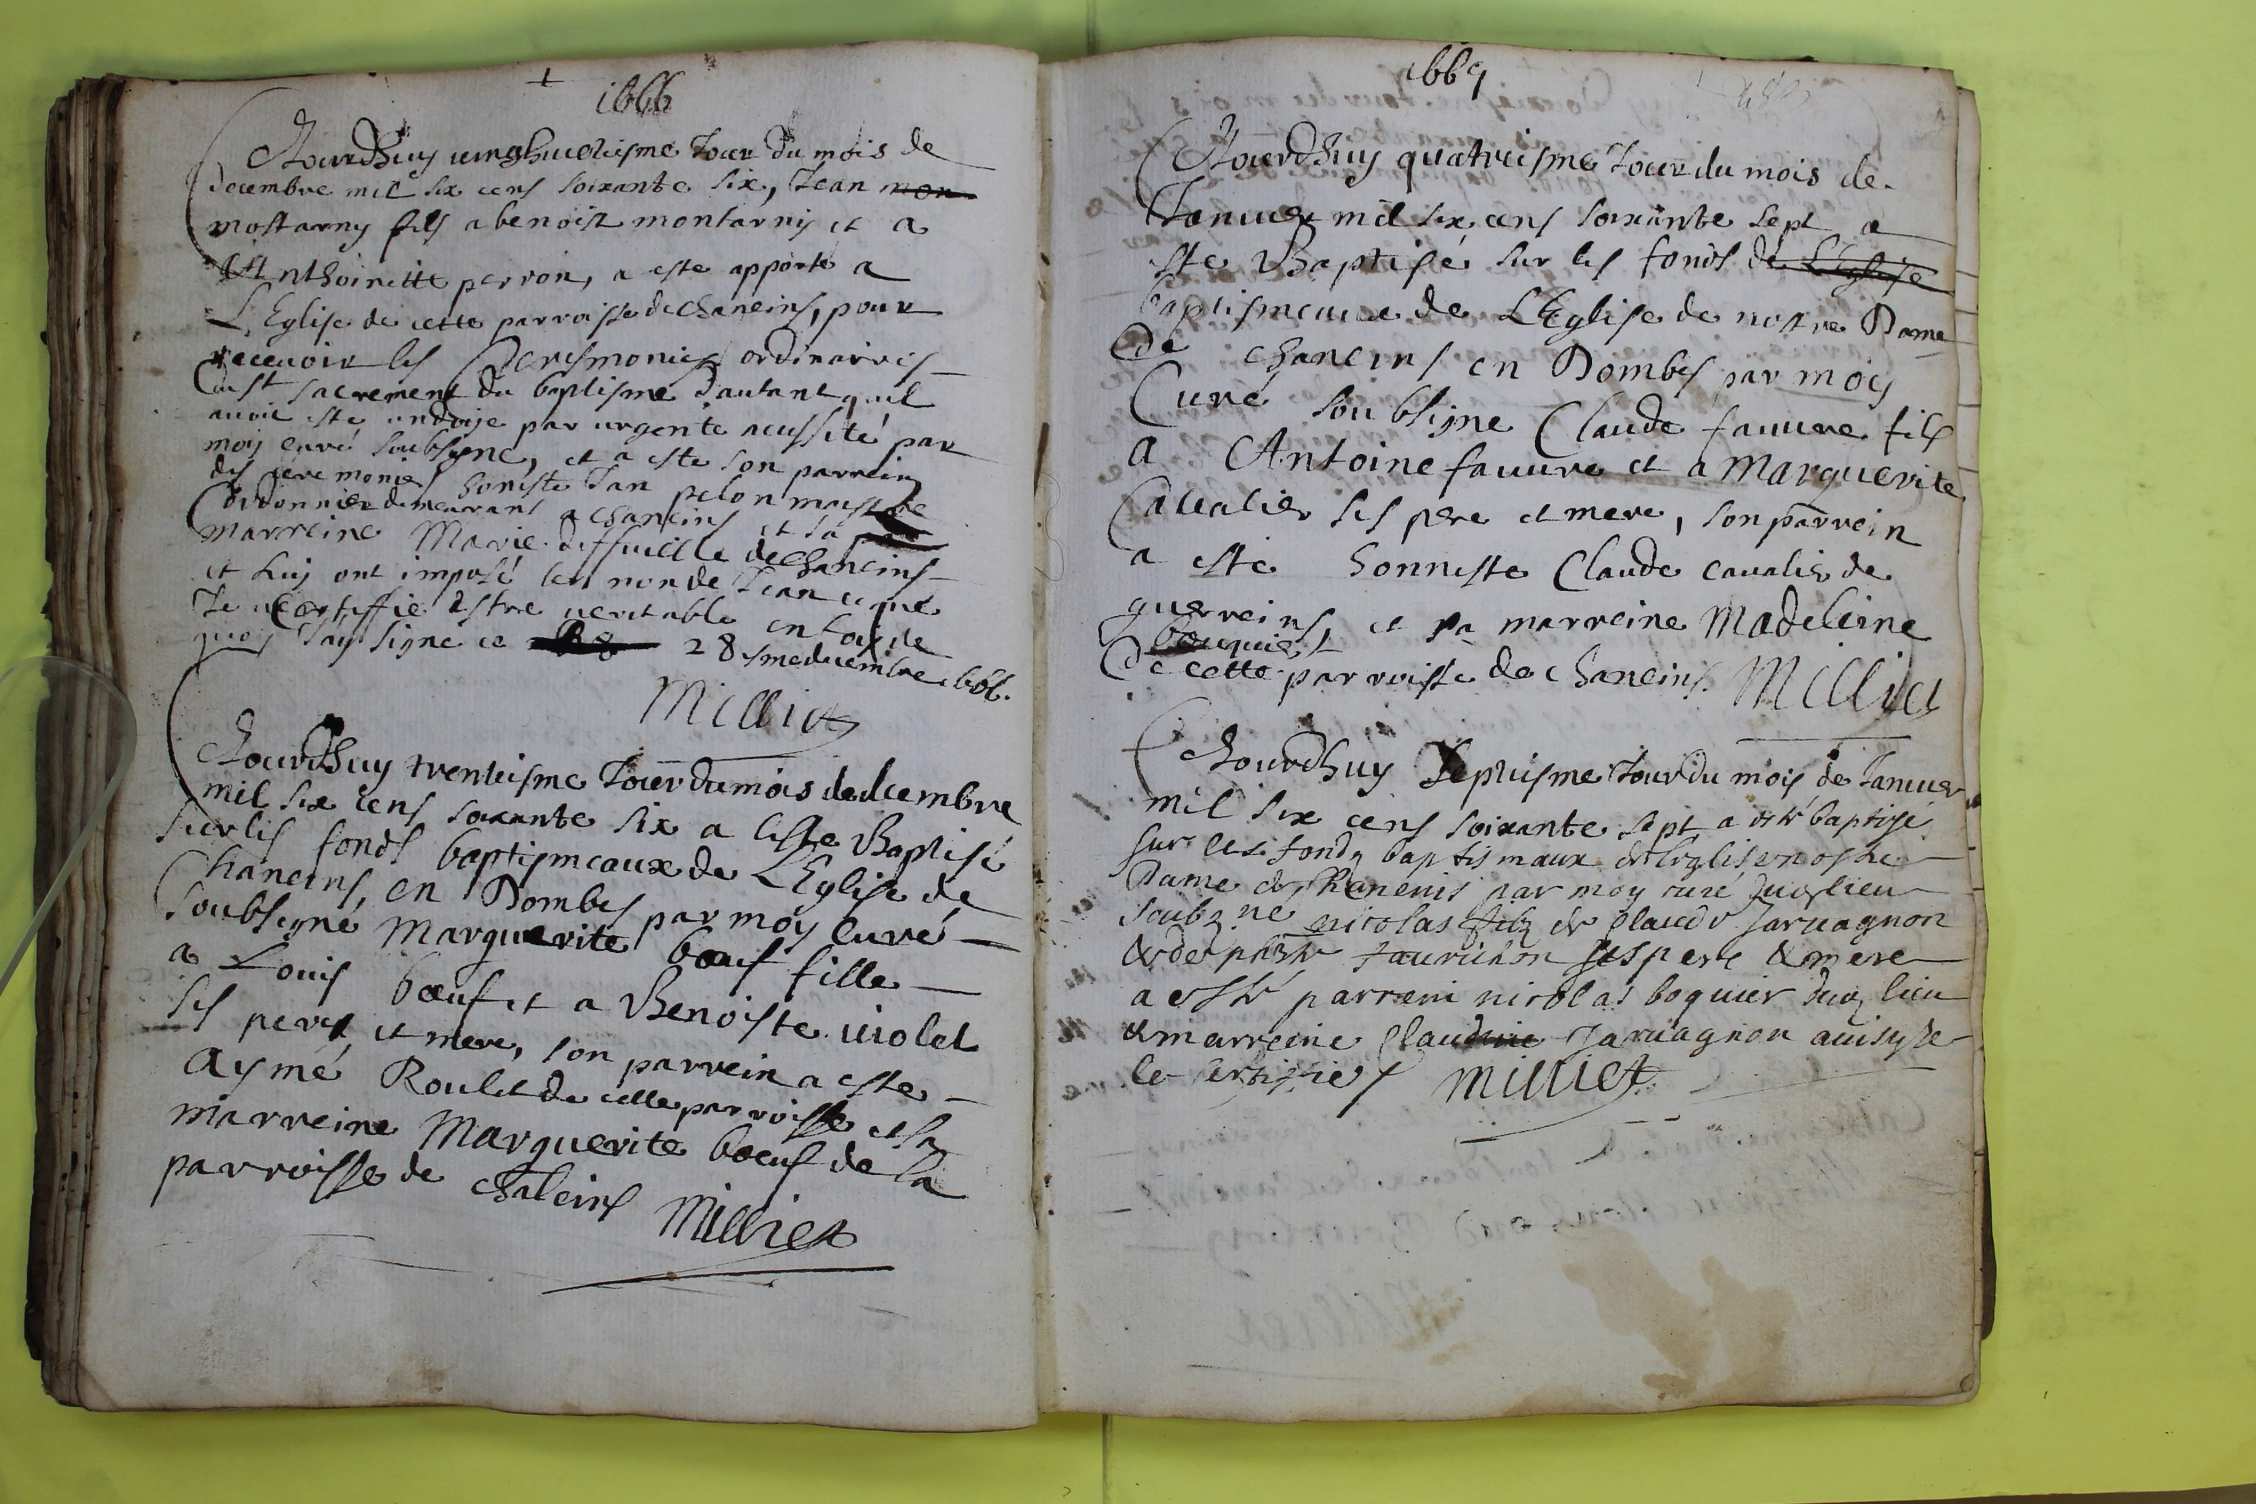 1666
Aujourdhuy vinghuitiesme Jour du mois de
decembre mil six cens soixante six, Jean mon
mostarny fils a benoist montarny et a
Anthoinette perron, a este apporte a
L'Eglise de cette parroisse de Chaneins, pour
recevoir les Ceresmonies ordinaires
du st sacrement du baptisme d'autant quil
avoit este undoye par urgente necessité par
moy curé soubsigne, et a este son parrein
des ceremonies honeste Jan pelon maistre
Cordonnier demeurant a chaneins et sa
marreine Marie de chaneins
et luy ont imposé le nom de Jean ce que
Je Certiffie estre veritable en foy de
quoy J'ay signe ce 28 28 sme decembre 1666.
Milliet
Aujourdhuy trentiesme Jour du mois de decembre
mil six cens soixante six a este Baptisé
sur les fonds baptismeaux de L'Eglise de
Chaneins, en Dombes par moy curé
soubsigné Marguerite bœuf fille
a Louis bœuf et a Benoiste violet
ses peres et mere, son parrein a este
Aymé Roulet de cette parroisse et sa
marreine Marguerite bœuf de la
parroisse de chaleins Milliet
1667
Aujourdhuy quatriesme Jour du mois de
Janvier mil six cens soixante sept a
este Baptisé sur les fonds de L'Eglise
baptismeaux de L'Eglise de nostre Dame
de chaneins en Dombes par moy
Curé soubsigne Claude fauvre fils
a Antoine fauvre et a Marguerite
Cavalier ses pere et mere, son parrein
a este honneste Claude cavalier de
guerreins, et sa marreine Madeleine
boquier
de cette parroisse de chaneins. Milliet
Aujourdhuy septiesme Jour du mois de Janvier
mil six cens soixante sept a esté baptisé
sur les fonds baptismaux de leglise nostre
Dame de Chaneins par moy curé dud lieu
soubzne nicolas filz de Claude Jarvagnon
& de ses pere & mere
a esté parrein nicolas boquier dud lieu
& marreine Claudine Jarvagnon ainsy je
le certifie Milliet